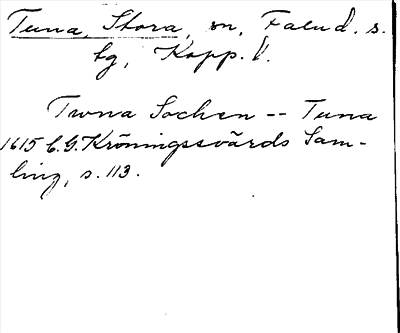 Tuna, Stora, sn, Falu d. s.
tg, Kopp. l.
Twna Sochen -- Tuna
1615 C.G. Kröningssvärds Sam-
ling, s. 113.